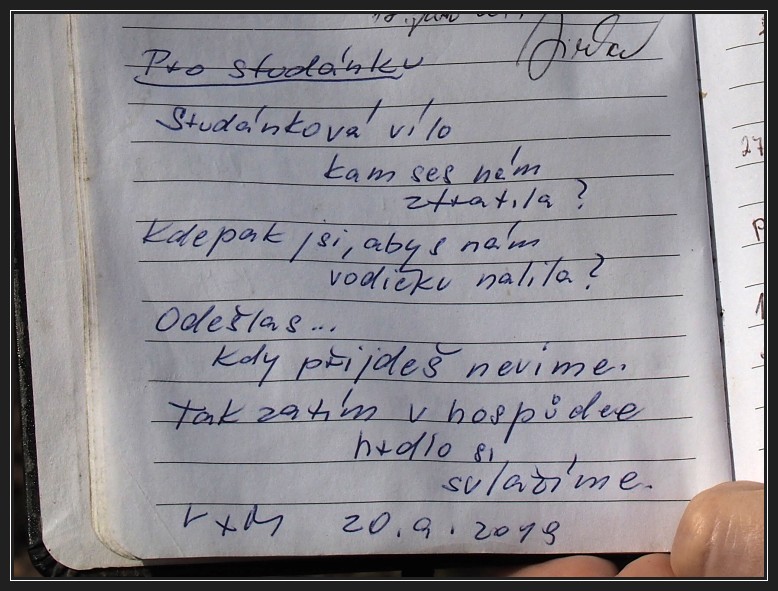 Jirka
Pro studánku
Studánková vílo
kam ses nám
ztratila?
Kdepak jsi, abys nám
vodičku nalila?
Odešlas...
Kdy přijdeš nevíme.
Tak zatím v hospůdce
hrdlo si
svlažíme.
V+M 20.9.2019
27